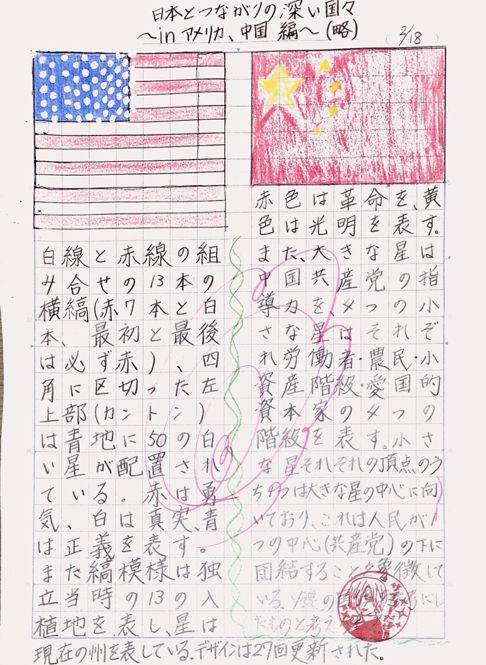 日本とつながりの深い国々
〜in アメリカ、中国 編〜 (略)
2/18
白線と赤線の組
み合せの13本の
横縞(赤7本と白
本、最初と最後
は必ず赤)、四
角に区切った左
上部(カントン)
は青地に50の白
い星が配置され
ている。赤は勇
気、白は真実、青
は正義を表す。
また縞模様は独
立当時の13の入
植地を表し、星は
現在の州を表している。デザインは27回更新された。
赤色は革命を、黄
色は光明を表す。
また、大きな星は
中国共産党の指
導力を、4つの小
さな星はそれぞ
れ労働者・農民・小
資産階級・愛国的
資本家の4つの
階級を表す。小さ
な星それぞれの頂点のう
ち1つは大きな星の中心に向
いており、これは人民が1
つの中心(共産党)の下に
団結することを象徴して
いる。ソ連の
したものと考え